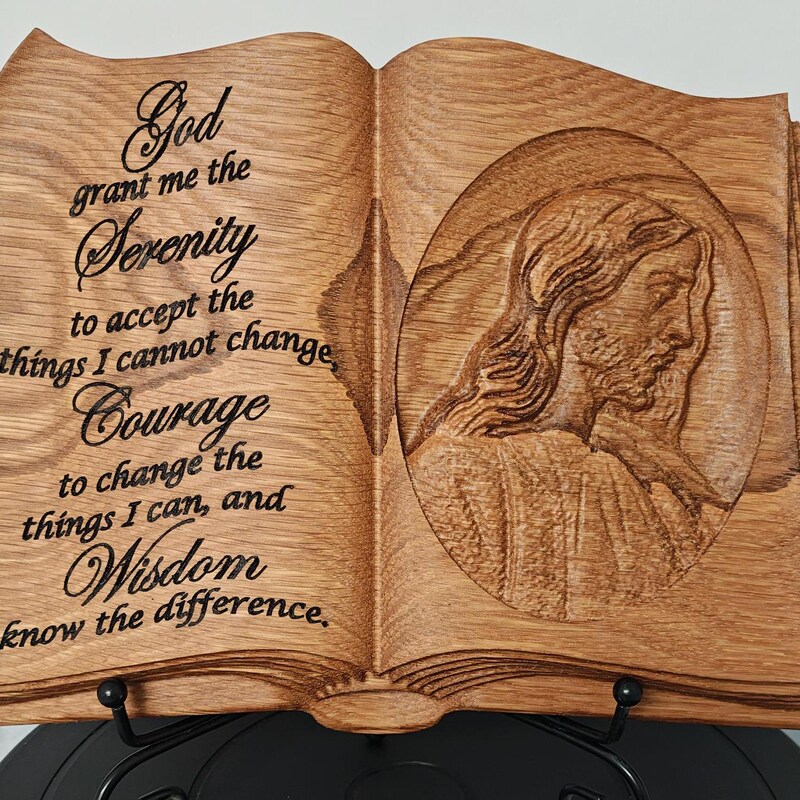 God
grant me the
Serenity
to accept the
things I cannot change,
Courage
to change the
things I can, and
Wisdom
know the difference.